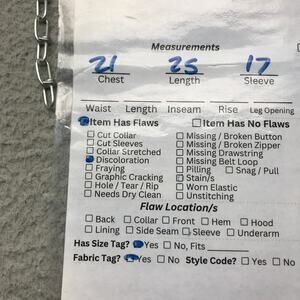 Measurements
21 25 17
Chest Length Sleeve
Waist Length Inseam Rise Leg Opening
Item Has Flaws Item Has No Flaws
Cut Collar Missing / Broken Button
Cut Sleeves Missing / Broken Zipper
Collar Stretched Missing Drawstring
Discoloration Missing Belt Loop
Fraying Pilling Snag / Pull
Graphic Cracking Stain/s
Hole / Tear / Rip Worn Elastic
Needs Dry Clean Unstitching
Flaw Location/s
Back Collar Front Hem Hood
Lining Side Seam Sleeve Underarm
Has Size Tag? Yes No, Fits
Fabric Tag? Yes No Style Code? Yes No